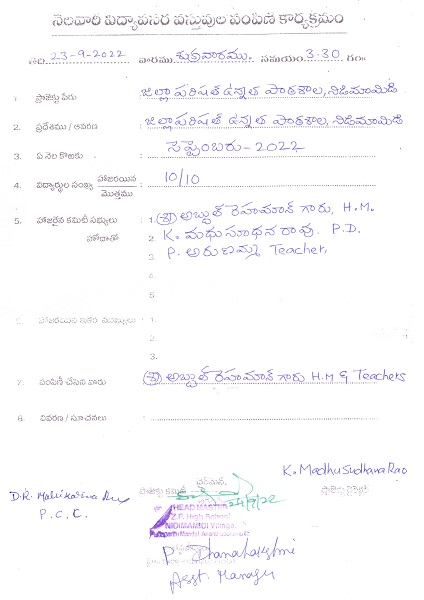 నెలవారీ విద్యావసర వస్తువుల పంపిణీ కార్యక్రమం
తేది. 23-9-2022 వారము. శుక్రవారము. సమయం. 3-30 గం॥
1. ప్రాజెక్టు పేరు : జిల్లా పరిషత్ ఉన్నత పాఠశాల, నిడిమామిడి
2. ప్రదేశము / ఆవరణ : జిల్లా పరిషత్ ఉన్నత పాఠశాల, నిడిమామిడి
3. ఏ నెల కొరకు : సెప్టెంబరు - 2022
4. విద్యార్థుల సంఖ్య హాజరయిన / మొత్తము : 10/10
5. హాజరైన కమిటీ సభ్యులు : 1. (శ్రీ) అబ్దుల్ రెహమాన్ గారు, H.M.
హోదాతో 2. K. మధుసూధన రావు. P.D.
3. P. అరుణమ్మ Teacher,
4.
5.
6. హాజరయిన ఇతర ముఖ్యులు : 1.
2.
3.
7. పంపిణీ చేసిన వారు : (శ్రీ) అబ్దుల్ రెహమాన్ గారు H.M & Teachers
8. వివరణ / సూచనలు :
K. Madhu Sudhana Rao
చైర్మన్,
ప్రాజెక్టు కమిటీ
ప్రాజెక్టు డైరెక్టర్
24/9/22
D.R.
P.C.C.
HEAD MASTER
Z.P. High School
NIDIMAMIDI Village,
P. Dhanalakshmi
Asst. Manager